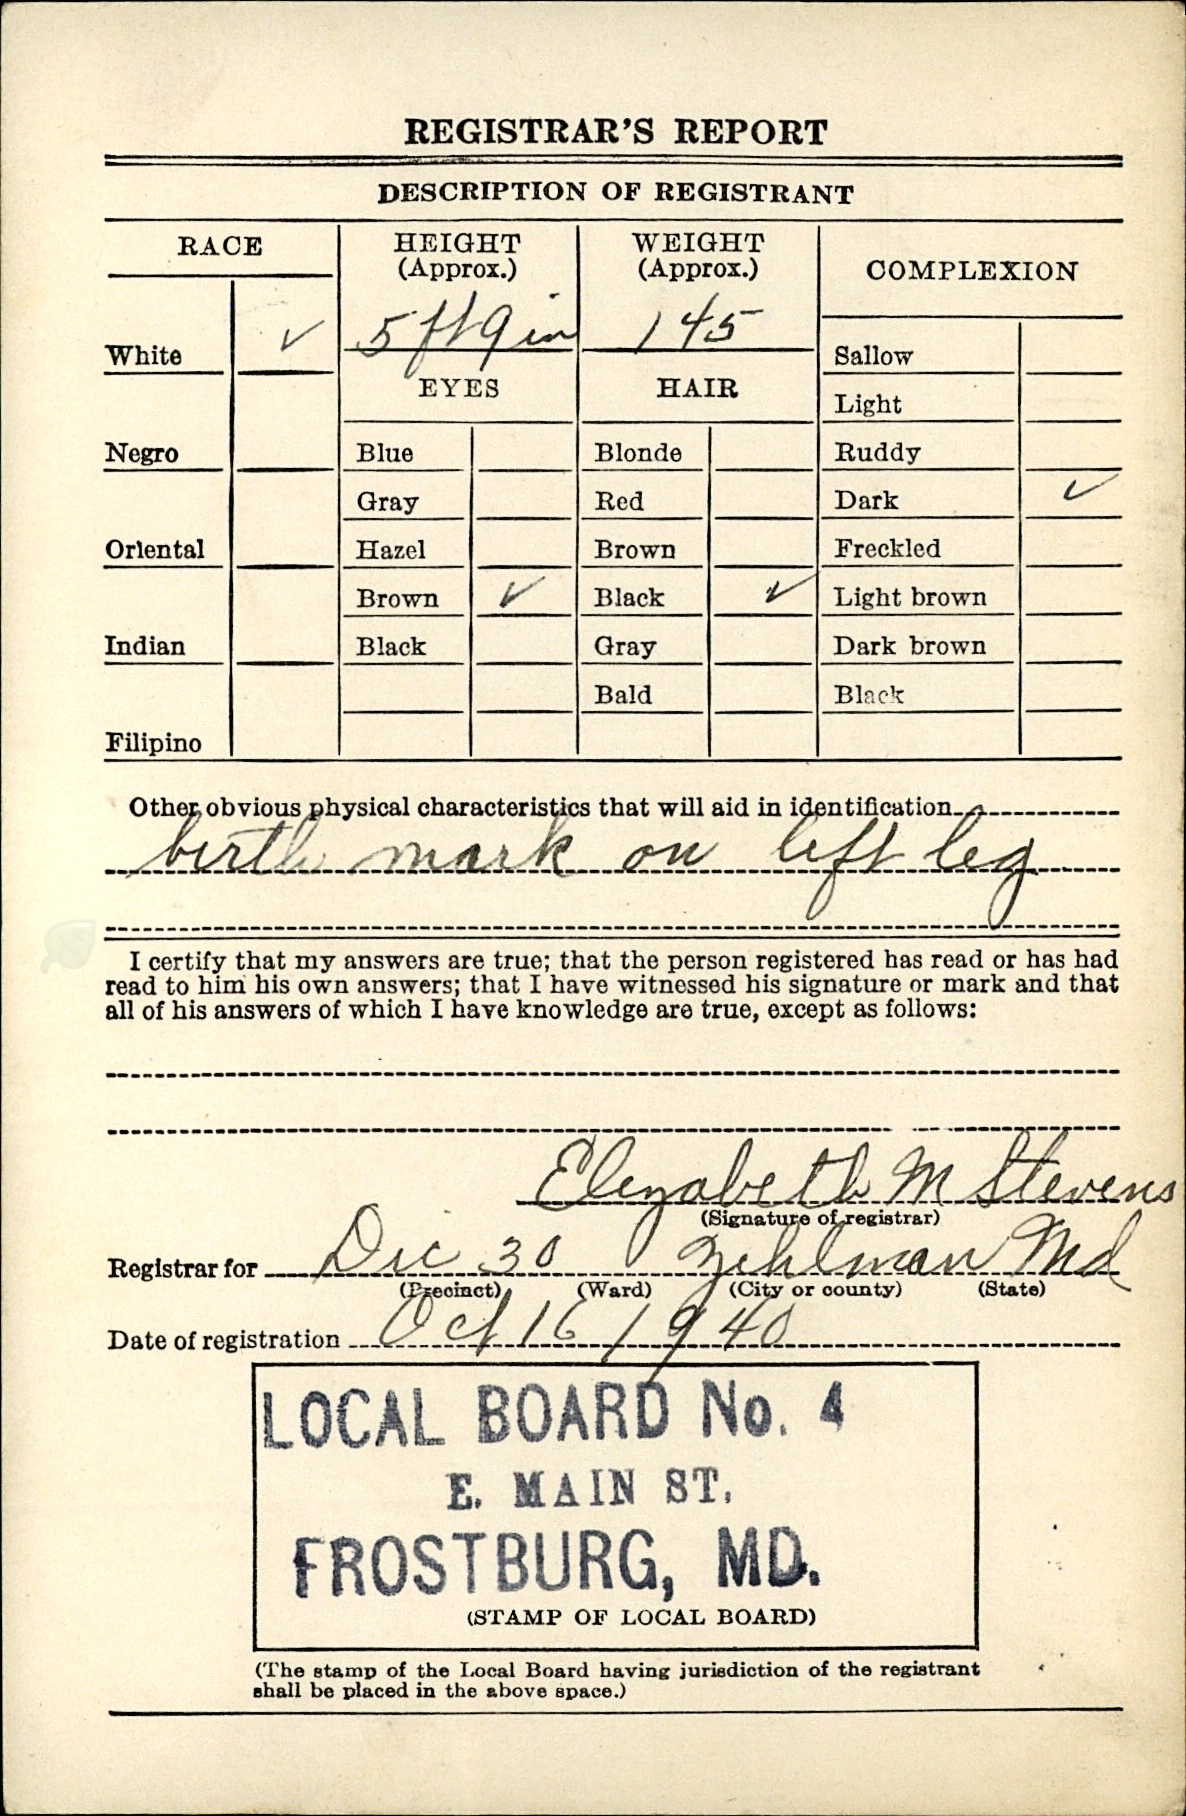 REGISTRAR'S REPORT
DESCRIPTION OF REGISTRANT
RACE
HEIGHT
(Approx.)
WEIGHT
(Approx.)
COMPLEXION
White ✓
5 ft 9 in
145
Sallow
EYES
HAIR
Light
Negro
Blue
Blonde
Ruddy
Gray
Red
Dark ✓
Oriental
Hazel
Brown
Freckled
Brown ✓
Black ✓
Light brown
Indian
Black
Gray
Dark brown
Bald
Black
Filipino
Other obvious physical characteristics that will aid in identification
birth mark on left leg
I certify that my answers are true; that the person registered has read or has had
read to him his own answers; that I have witnessed his signature or mark and that
all of his answers of which I have knowledge are true, except as follows:
Elizabeth M Stevens
(Signature of registrar)
Registrar for Dic 30 Zehlman Md
(Precinct) (Ward) (City or county) (State)
Date of registration Oct 16 1940
LOCAL BOARD No. 4
E. MAIN ST.
FROSTBURG, MD.
(STAMP OF LOCAL BOARD)
(The stamp of the Local Board having jurisdiction of the registrant
shall be placed in the above space.)